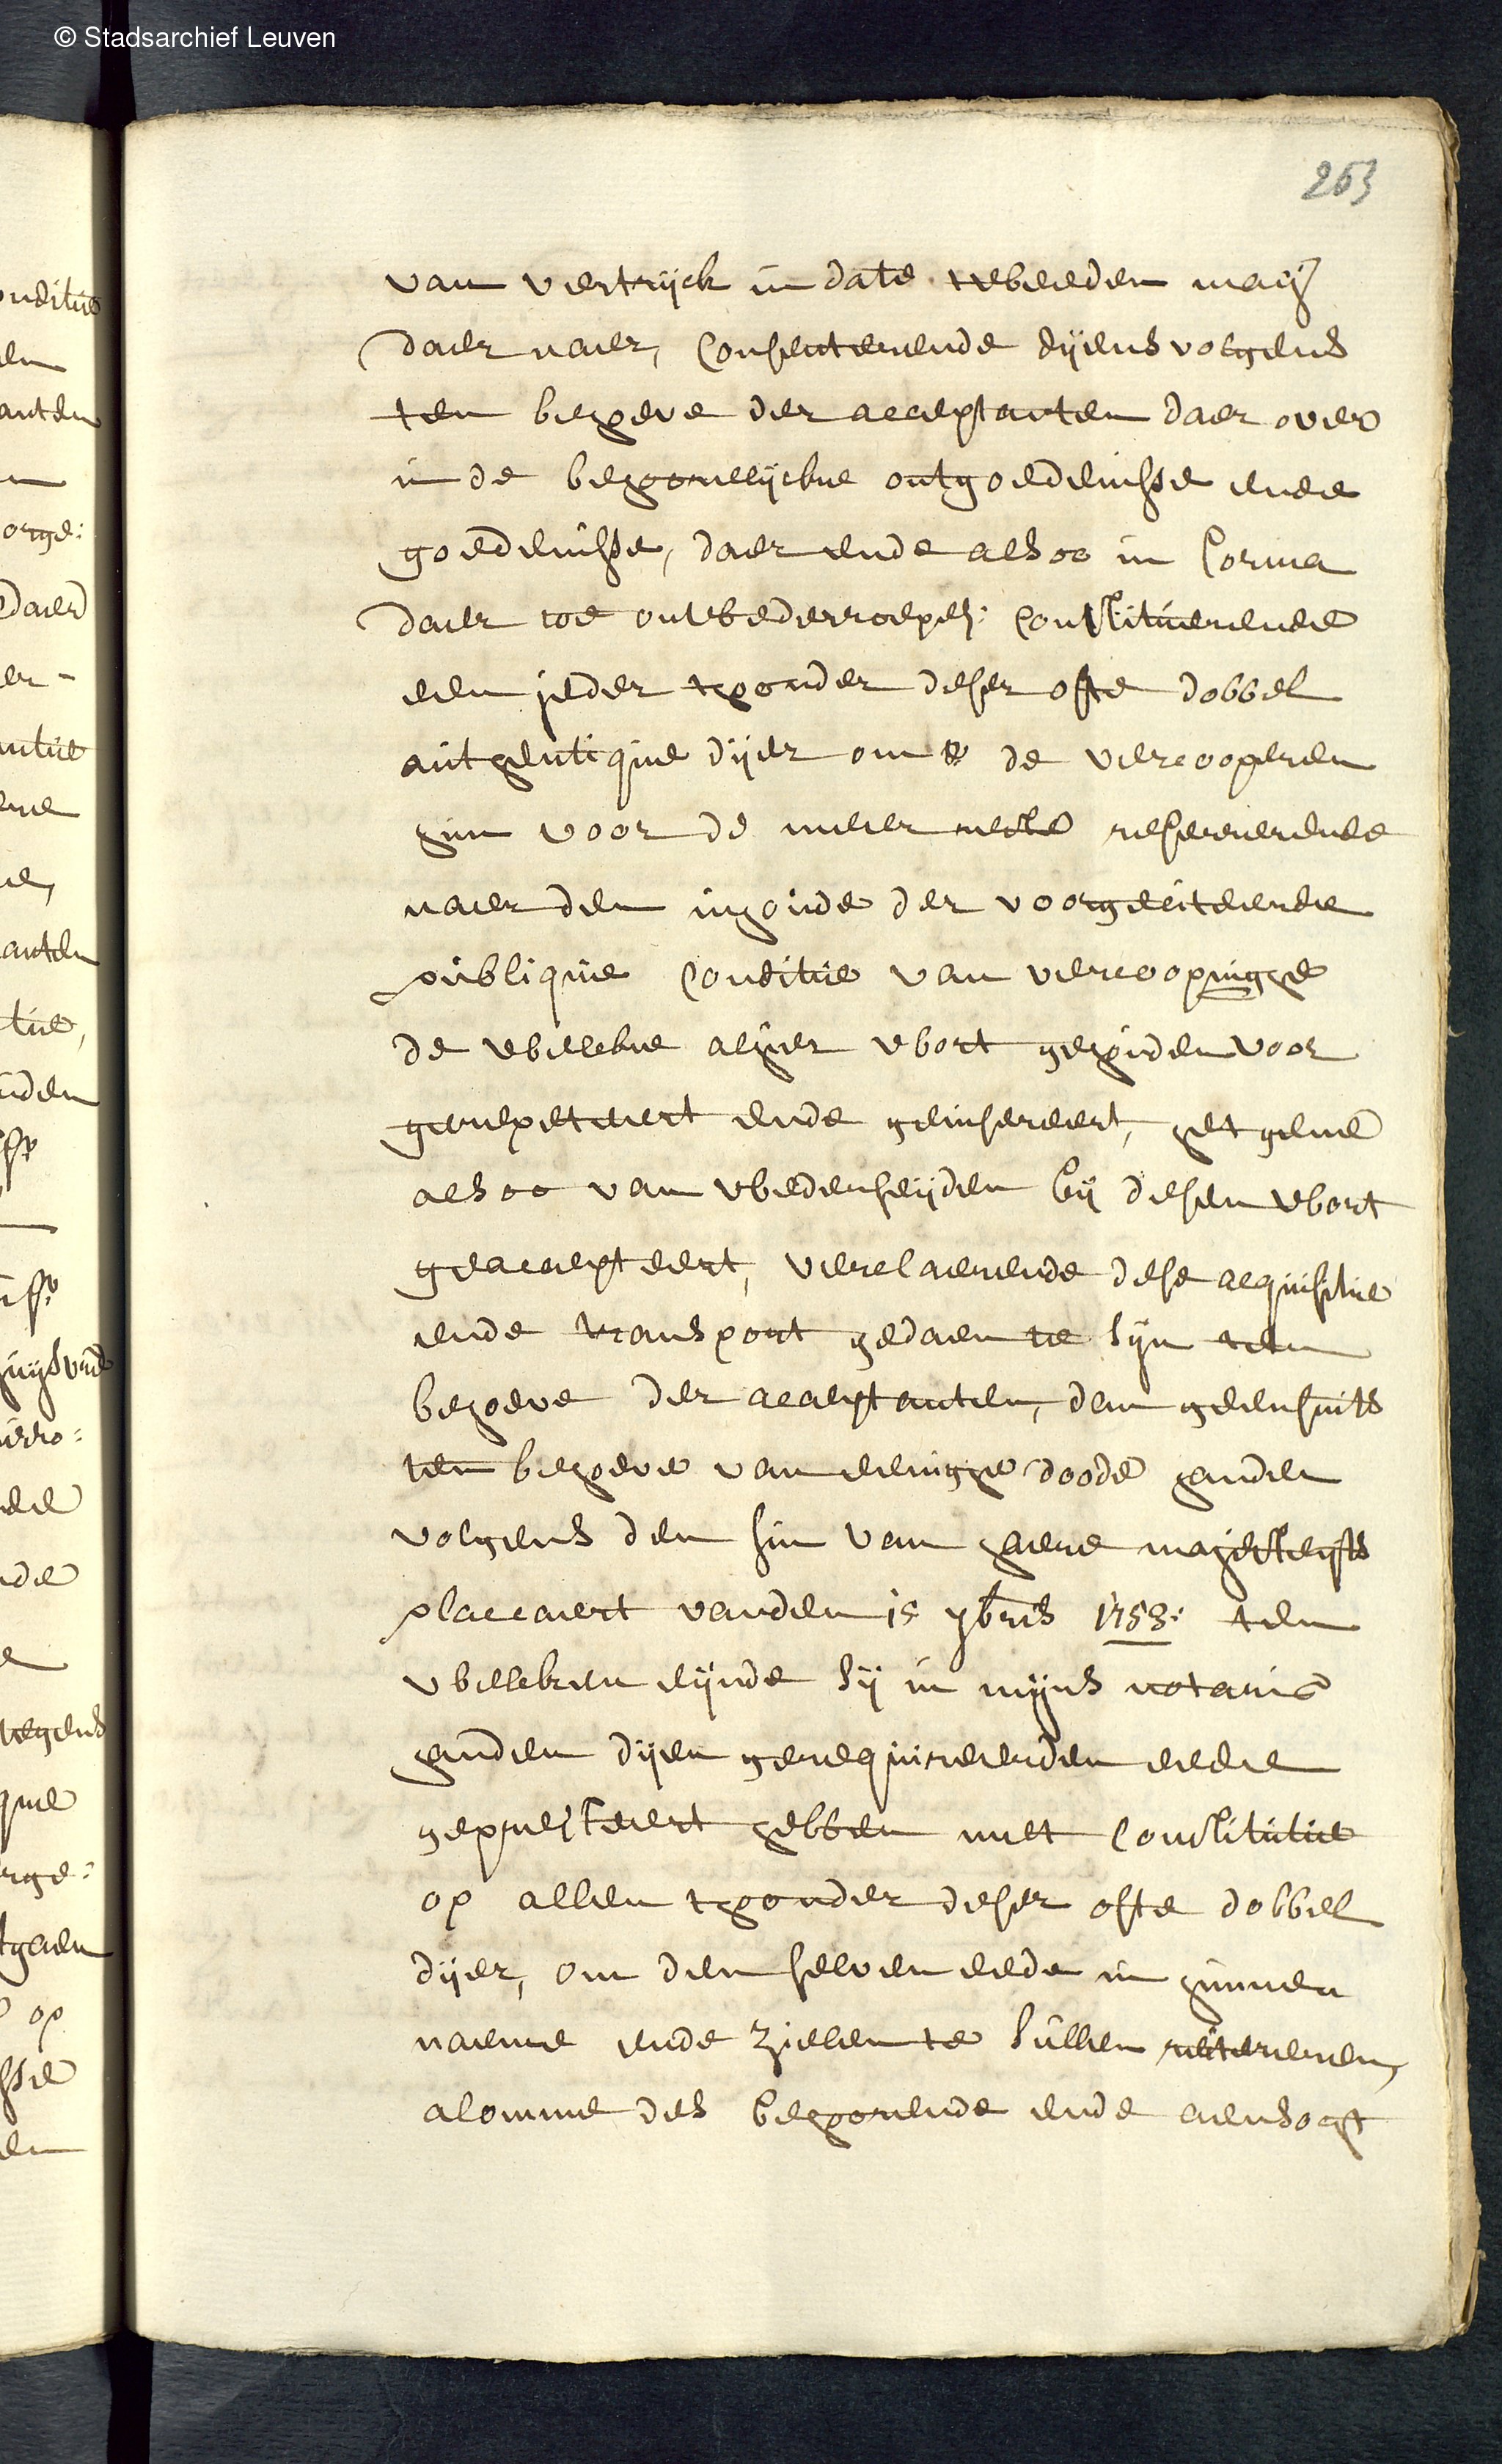 © Stadsarchief Leuven
263
van vertrijck in date tweeden meij
daer naer, Consenterende dijensvolgens
ten behoeve der acceptanten daer over
in de behoorelijcke ontgoedenisse ende
goedenisse, daer ende alsoo in forma
daer toe onwederroepel: Constituerende
een jeder thoonder deser ofte dobbel
authentique dijer om de vercooperen
hun voor de meier reserverende
naer den inhoude der voorgeciteerde
publique Conditie van vercoopinghe
de welcke alhier wort gehouden voor
gerepeteert ende geinsereert, het gene
alsoo van wederseijden bij desen wort
geaccepteert, verclaerende dese acquisitie
ende transport gedaen te sijn ten
behoeve der acceptanten, dan geensints
ten behoeve van eenighe doode handen
volgens den sin van haere majesteijts
placcaert vanden 15 7bris 1753: ten
welcken eijnde sij in mijns notaris
handen dijen gerequireerden eede
gepresteert hebben met Constitutie
op allen thoonder deser ofte dobbel
dijer, om den selven eede in hunnen
naeme ende zielen te sullen reitereren,
alomme des behoorende ende aensocht